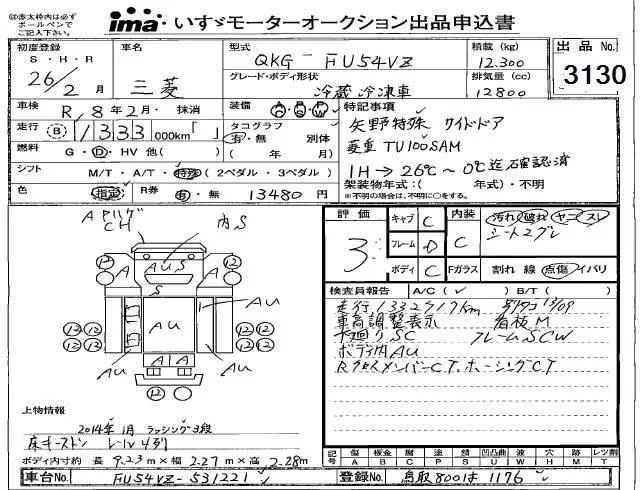 ⓪赤太枠内は必ず
ボールペンで
ご記入下さい。
ima・いすゞモーターオークション出品申込書
初度登録 車名 型式 積載(kg) 出品No.
S・H・R QKG-FU54VZ 12.300
26/2月 三菱 グレード・ボディ形状 排気量(cc) 3130
冷蔵冷凍車 12800
車検 R,8年2月・抹消 装備 A・P・P W 特記事項
走行 B 1333 000km「 」 タコグラフ 矢野特殊 サイドドア
有・無 別体
燃料 G・D・HV 他( ) (年 月) 菱重 TU100SAM
シフト M/T・A/T・特殊(2ペダル・3ペダル) 1H→26℃~0℃迄確認済
色 (指定) R券 有・無 13480円 架装物年式:( 年式)・不明
※不明の場合は、不明に○をする。
評価 キャブ C 内装 汚れ 破れ ヤニコ スレ
3 フレーム D C シート2グレ
ボディ C Fガラス 割れ 線 点傷 イバリ
検査員報告 A/C(✓) B/T( )
走行133271.7km 13/09
車高調整表示 看板M
下廻りSC フレームSCW
ボディ内AU
RクロスメンバーCT. ホーシングCT
Aアルゲ
CH
内S
12 12
12 12
A AUS A
S
AU AU
AU
12 12 12 12
12 12 12 12
AU A A AU
12
上物情報
2014年1月 ラッシング3段
床キーストン レール4列
ボディ内寸約 長9.23m×幅2.27m×高2.28m
記号 傷 板金 腐 塗 錆 凹凸曲 波 穴 跡 レツ割
A B C P S U W H M T
車台No. FU54VZ-531221 登録No. 鳥取800は1176